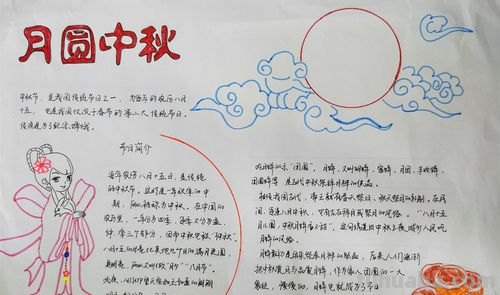 月圆中秋
中秋节，是我国传统节日之一，为每年的农历八月
十五，也是我国仅次于春节的第二大传统节日。
传说是为了纪念嫦娥。
节日简介
每年农历八月十五日，是传统
的中秋节，这时是一年秋季的中
期，所以被称为中秋。在中国的
农历里，一年分为四季，每季又分为孟、
仲、季三个部分，因而中秋也称"仲秋"。
八月十五的月亮比其他几个月的满月更圆，
更明亮，所以又叫做"月夕""八月节"。
此夜，人们仰望天空如玉如盘的朗朗
吃月饼以示"团圆"。月饼，又叫胡饼、宫饼、月团、丰收饼、
团圆饼等，是古代中秋祭拜月神的供品。
相传我国古代，帝王就有春天祭日、秋天祭月的礼制。在民
间，每逢八月中秋，也有左右拜月或祭月的风俗。"八月十五
月儿圆，中秋月饼香又甜"，这句谚语道出中秋之夜城乡人民吃
月饼的风俗。
月饼最初是用来祭奉月神的祭品，后来人们逐渐
把中秋赏月与品尝月饼，作为家人团圆的一大
象征，慢慢的，月饼也就成为了节日